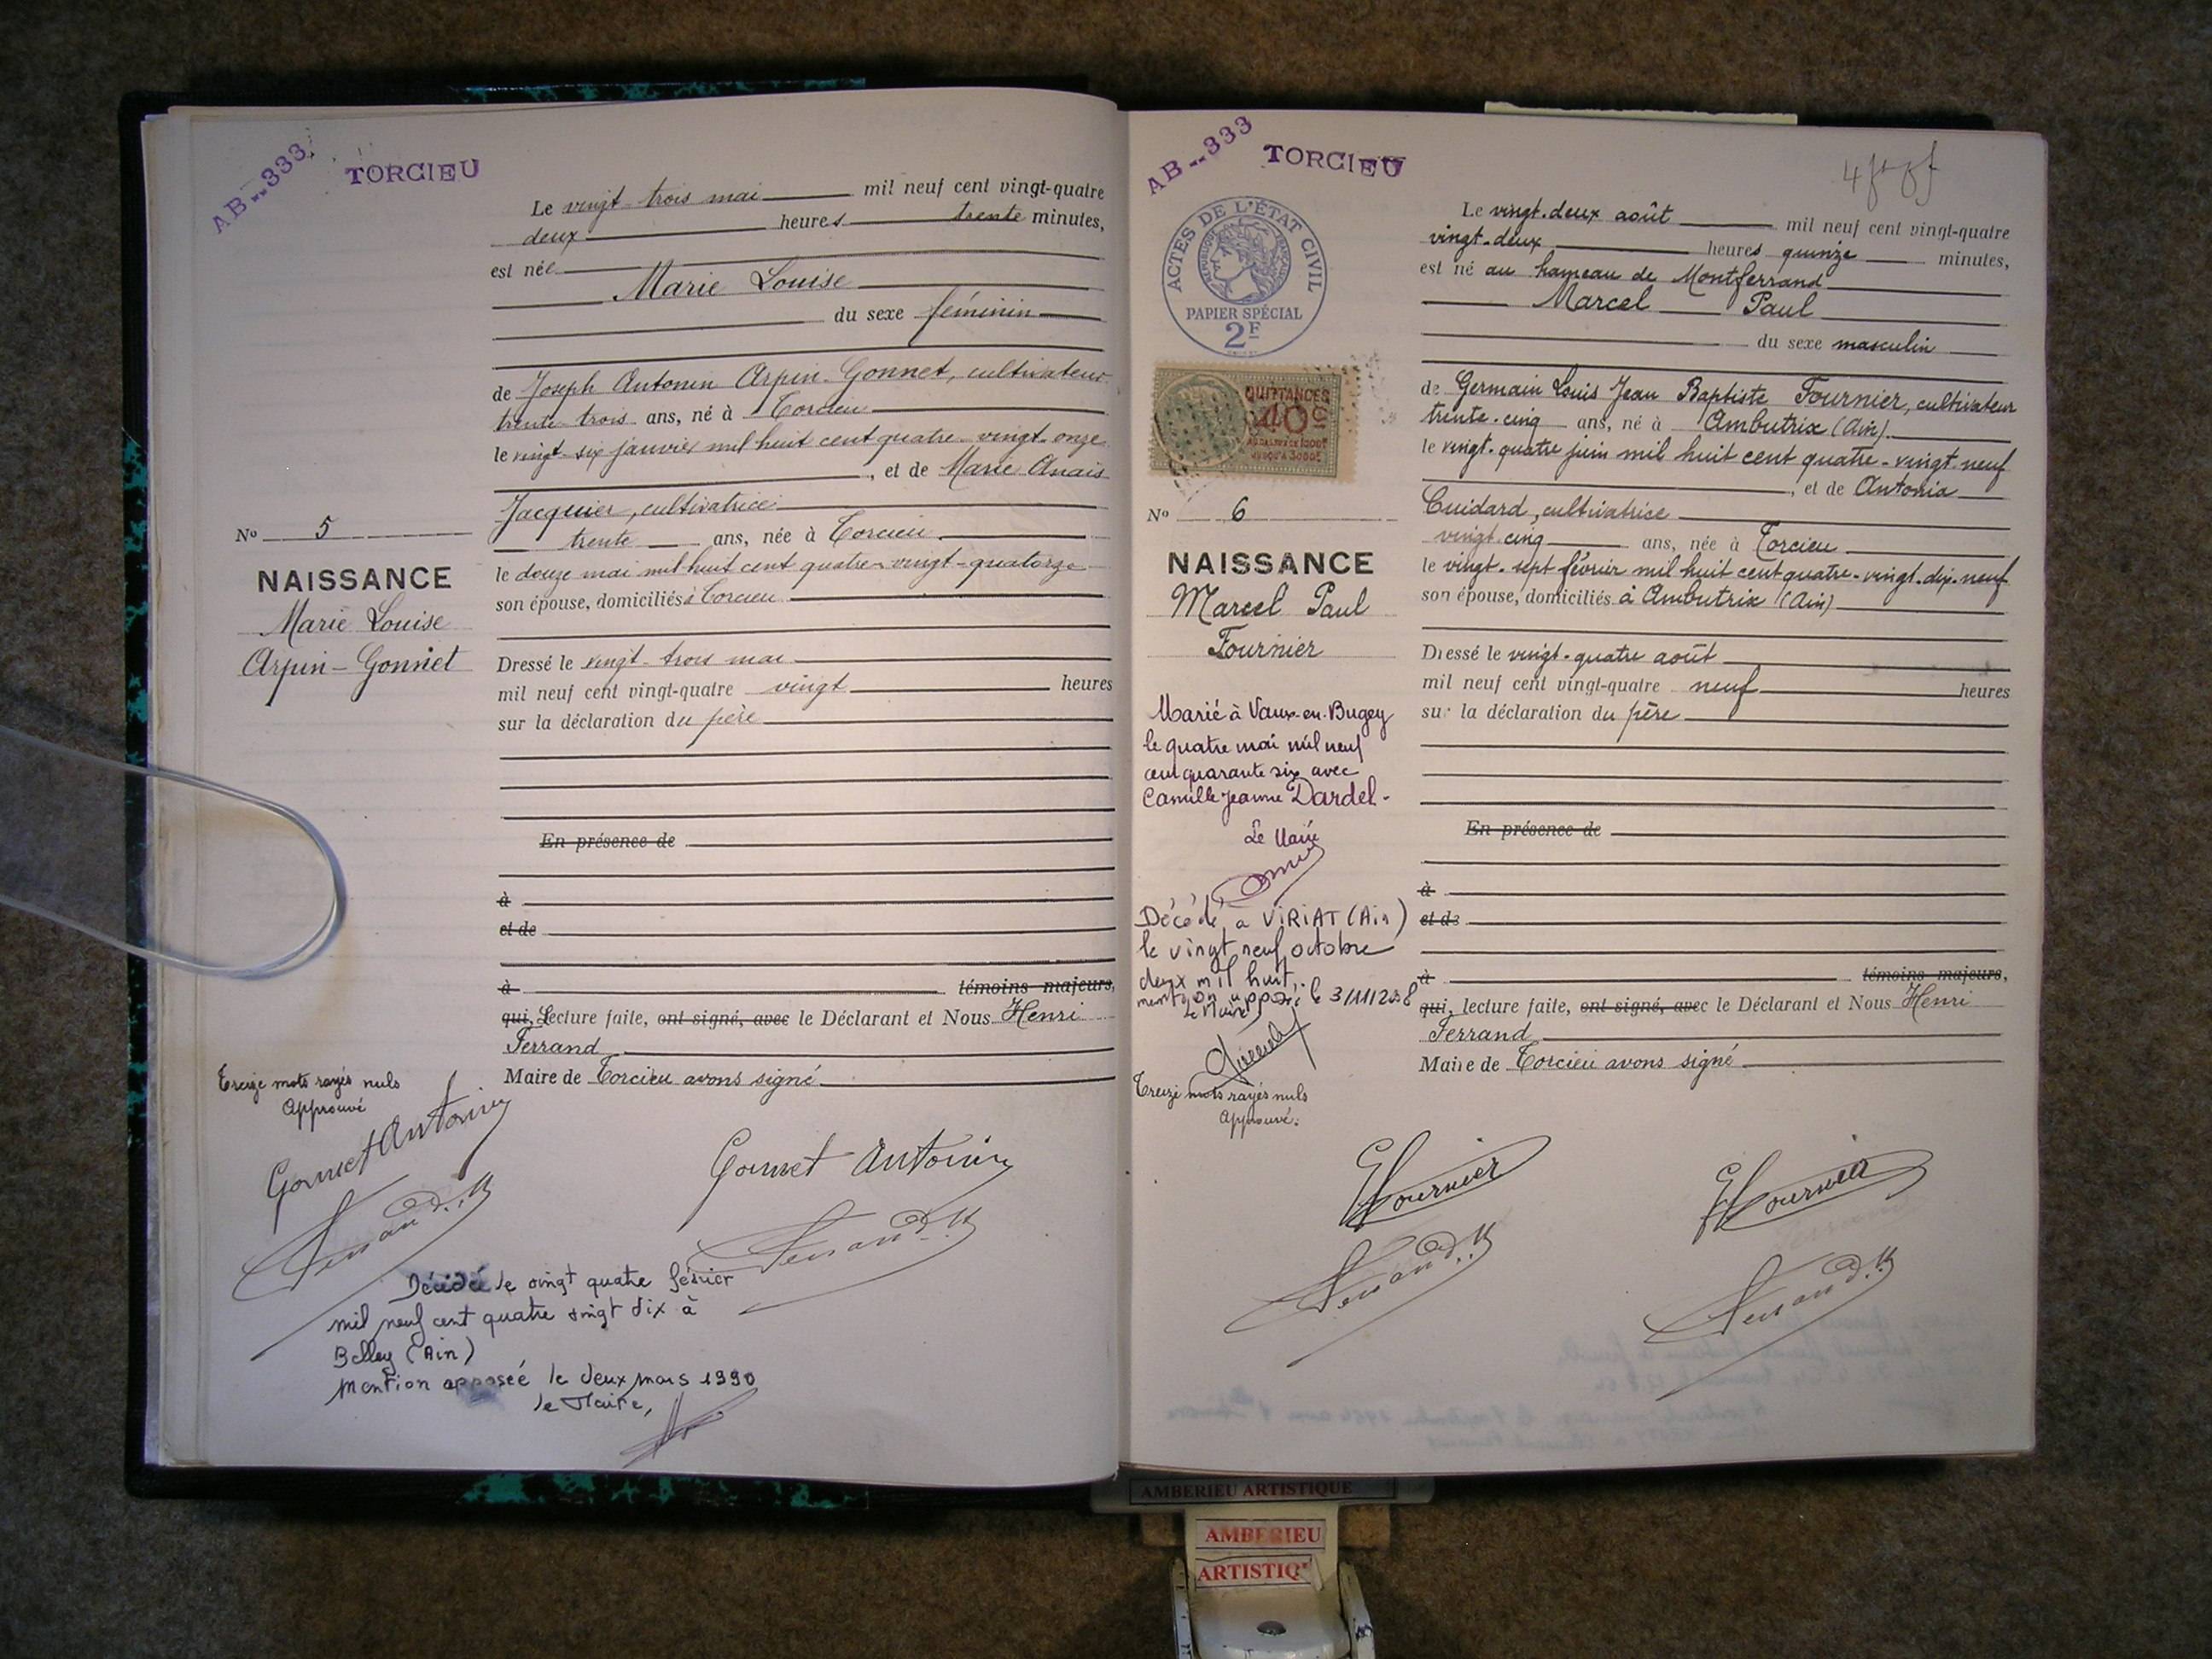 AB--333
TORCIEU
Le vingt-trois mai mil neuf cent vingt-quatre
deux heures trente minutes,
est née
Marie Louise
du sexe féminin
de Joseph Antonin Arpin-Gonnet, cultivateur
trente-trois ans, né à Torcieu
le vingt-six janvier mil huit cent quatre-vingt-onze
, et de Marie Anaïs
Jacquier, cultivatrice
trente ans, née à Torcieu
le douze mai mil huit cent quatre-vingt-quatorze
son épouse, domiciliés à Torcieu
No 5
NAISSANCE
Marie Louise
Arpin-Gonnet
Dressé le vingt-trois mai
mil neuf cent vingt-quatre vingt heures
sur la déclaration du père
En présence de
à
et de
à témoins majeurs,
qui, Lecture faite, ont signé, avec le Déclarant et Nous Henri
Ferrand
Maire de Torcieu avons signé
Treize mots rayés nuls
Approuvé
Gonnet Antonin
Gonnet Antonin
Ferrand. H
Ferrand. H
Décédée le vingt quatre février
mil neuf cent quatre vingt dix à
Belley (Ain)
Mention apposée le deux mars 1990
le Maire,
AB--333
TORCIEU
ACTES DE L'ÉTAT CIVIL
RÉPUBLIQUE FRANÇAISE
PAPIER SPÉCIAL
2F
QUITTANCES
40c
Le vingt-deux août mil neuf cent vingt-quatre
vingt-deux heures quinze minutes,
est né au hameau de Montferrand
Marcel Paul
du sexe masculin
de Germain Louis Jean Baptiste Fournier, cultivateur
trente-cinq ans, né à Ambutrix (Ain)
le vingt-quatre juin mil huit cent quatre-vingt-neuf
, et de Antonia
Cuidard, cultivatrice
vingt-cinq ans, née à Torcieu
le vingt-sept février mil huit cent quatre-vingt-dix-neuf
son épouse, domiciliés à Ambutrix (Ain)
No 6
NAISSANCE
Marcel Paul
Fournier
Dressé le vingt-quatre août
mil neuf cent vingt-quatre neuf heures
sur la déclaration du père
Marié à Vaux-en-Bugey
le quatre mai mil neuf
cent quarante six avec
Camille Jeanne Dardel-
Le Maire
Décédé à VIRIAT (Ain)
le vingt neuf octobre
deux mil huit,
mention apposée le 3/11/2008
Le Maire
En présence de
à
et de
à témoins majeurs,
qui, lecture faite, ont signé, avec le Déclarant et Nous Henri
Ferrand
Maire de Torcieu avons signé
Treize mots rayés nuls
Approuvé.
Fournier
Fournier
Ferrand. H
Ferrand. H
AMBERIEU ARTISTIQUE
AMBERIEU
ARTISTIQ